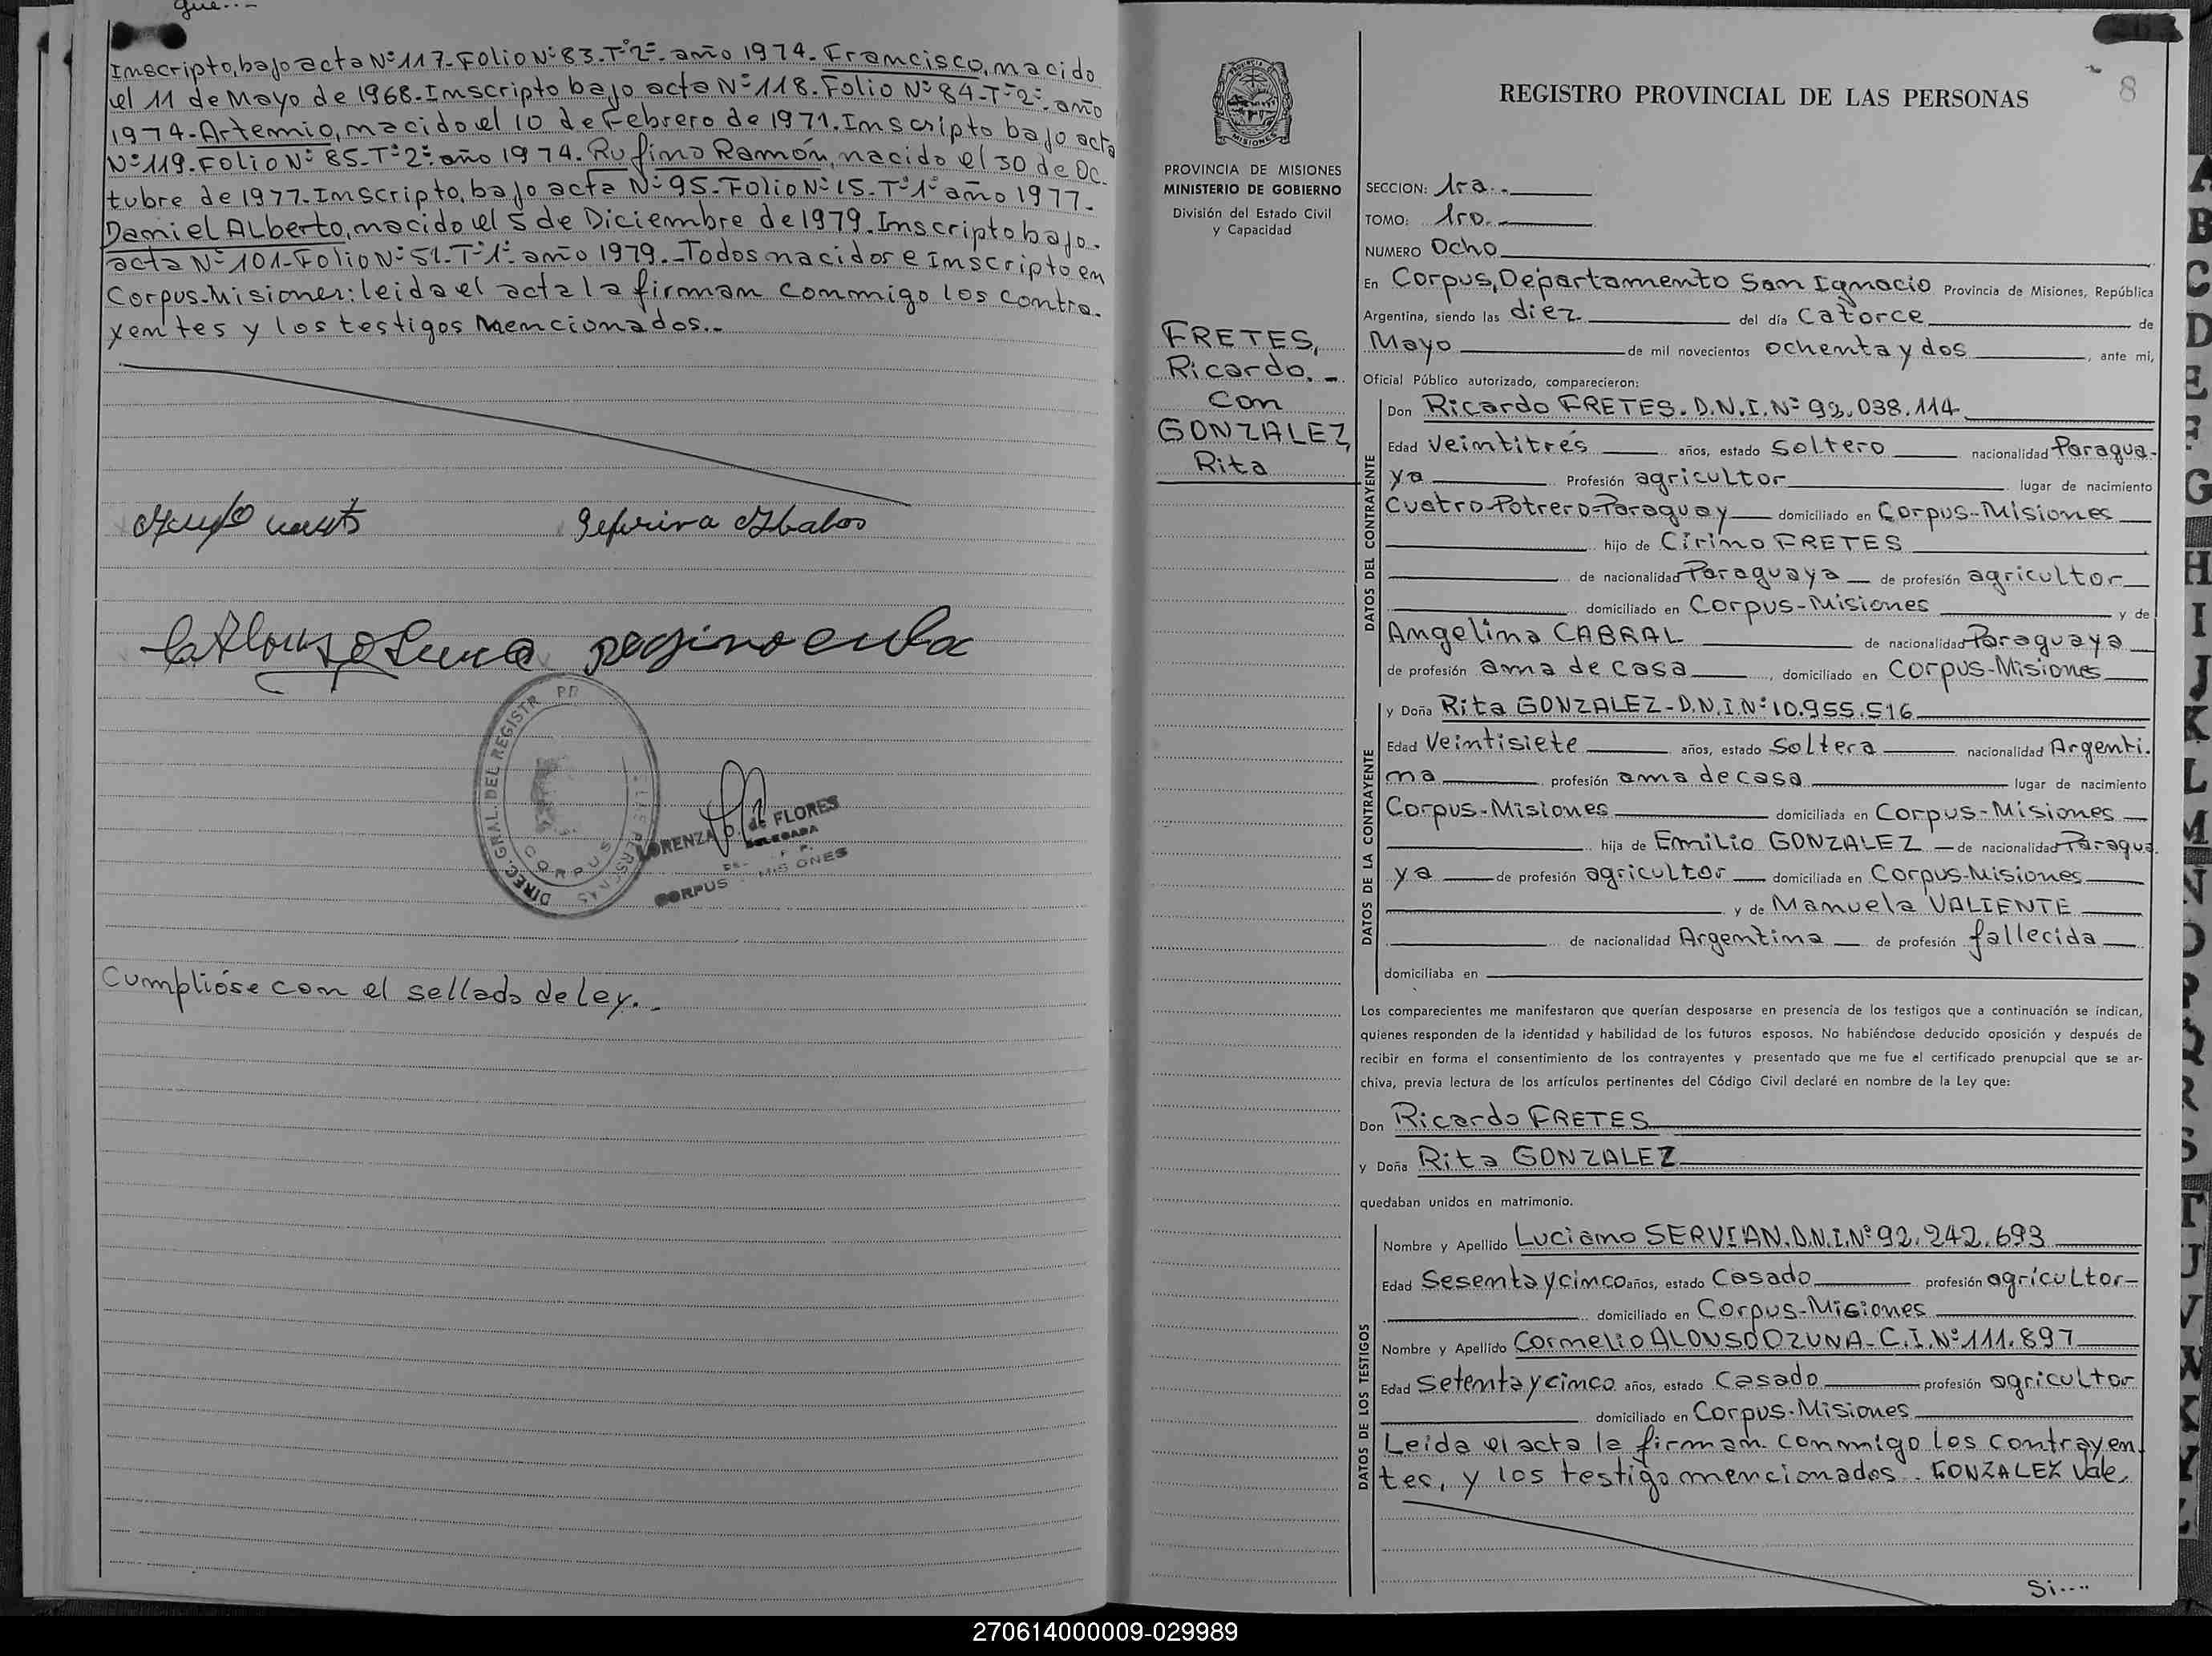 que...-
Inscripto, bajo acta Nº 117- Folio Nº 83-Tº 2º- año 1974- Francisco, nacido
el 11 de Mayo de 1968- Inscripto bajo acta Nº 118. Folio Nº 84-Tº 2º- año
1974- Artemio, nacido el 10 de Febrero de 1971. Inscripto bajo acta
Nº 119. Folio Nº 85-Tº 2º- año 1974. Rufino Ramón, nacido el 30 de Oc-
tubre de 1977- Inscripto, bajo acta Nº 95- Folio Nº 15-Tº 1º año 1977-
Daniel ALberto, nacido el 5 de Diciembre de 1979. Inscripto bajo-
acta Nº 101- Folio Nº 51-Tº 1º- año 1979.- Todos nacidos e Inscripto en
Corpus-Misiones: leida el acta la firman conmigo los contra-
yentes y los testigos mencionados.-
DIREC. GRAL. DEL REGISTR PR
DE LAS PERSONAS
CORPUS
LORENZA D. de FLORES
DELEGADA
CORPUS - MISIONES
Cumplióse con el sellado de ley.-
8
REGISTRO PROVINCIAL DE LAS PERSONAS
PROVINCIA DE MISIONES
MINISTERIO DE GOBIERNO
División del Estado Civil
y Capacidad
FRETES,
Ricardo.-
Con
GONZALEZ
Rita
SECCION: 1ra.-
TOMO: 1ro.-
NUMERO Ocho
En Corpus, Departamento San Ignacio Provincia de Misiones, República
Argentina, siendo las diez del día Catorce de
Mayo de mil novecientos ochenta y dos, ante mí,
Oficial Público autorizado, comparecieron:
DATOS DEL CONTRAYENTE
Don Ricardo FRETES. D.N.I. Nº 92.038.114
Edad Veintitrés años, estado Soltero nacionalidad Paragua-
ya Profesión agricultor lugar de nacimiento
Cuatro-Potrero-Paraguay domiciliado en Corpus-Misiones
hijo de Cirino FRETES
de nacionalidad Paraguaya de profesión agricultor
domiciliado en Corpus-Misiones y de
Angelina CABRAL de nacionalidad Paraguaya
de profesión ama de casa, domiciliado en Corpus-Misiones
DATOS DE LA CONTRAYENTE
y Doña Rita GONZALEZ - D.N.I. Nº 10.955.516
Edad Veintisiete años, estado Soltera nacionalidad Argenti-
na profesión ama de casa lugar de nacimiento
Corpus-Misiones domiciliada en Corpus-Misiones
hija de Emilio GONZALEZ de nacionalidad Paragua
ya de profesión agricultor domiciliada en Corpus-Misiones
y de Manuela VALIENTE
de nacionalidad Argentina de profesión fallecida
domiciliaba en
Los comparecientes me manifestaron que querían desposarse en presencia de los testigos que a continuación se indican,
quienes responden de la identidad y habilidad de los futuros esposos. No habiéndose deducido oposición y después de
recibir en forma el consentimiento de los contrayentes y presentado que me fue el certificado prenupcial que se ar-
chiva, previa lectura de los artículos pertinentes del Código Civil declaré en nombre de la Ley que:
Don Ricardo FRETES
y Doña Rita GONZALEZ
quedaban unidos en matrimonio.
DATOS DE LOS TESTIGOS
Nombre y Apellido Luciano SERVIAN. D.N.I. Nº 92.242.693
Edad Sesenta y cinco años, estado Casado profesión agricultor-
domiciliado en Corpus-Misiones
Nombre y Apellido Cornelio ALONSO OZUNA - C.I. Nº 111.897
Edad Setenta y cinco años, estado Casado profesión agricultor
domiciliado en Corpus-Misiones
Leida el acta la firman conmigo los contrayen
tes, y los testigo mencionados. GONZALEZ Vale.
Si....
A
B
C
D
E
F
G
H
I
J
K
L
M
N
O
P
Q
R
S
T
U
V
W
X
Y
Z
270614000009-029989